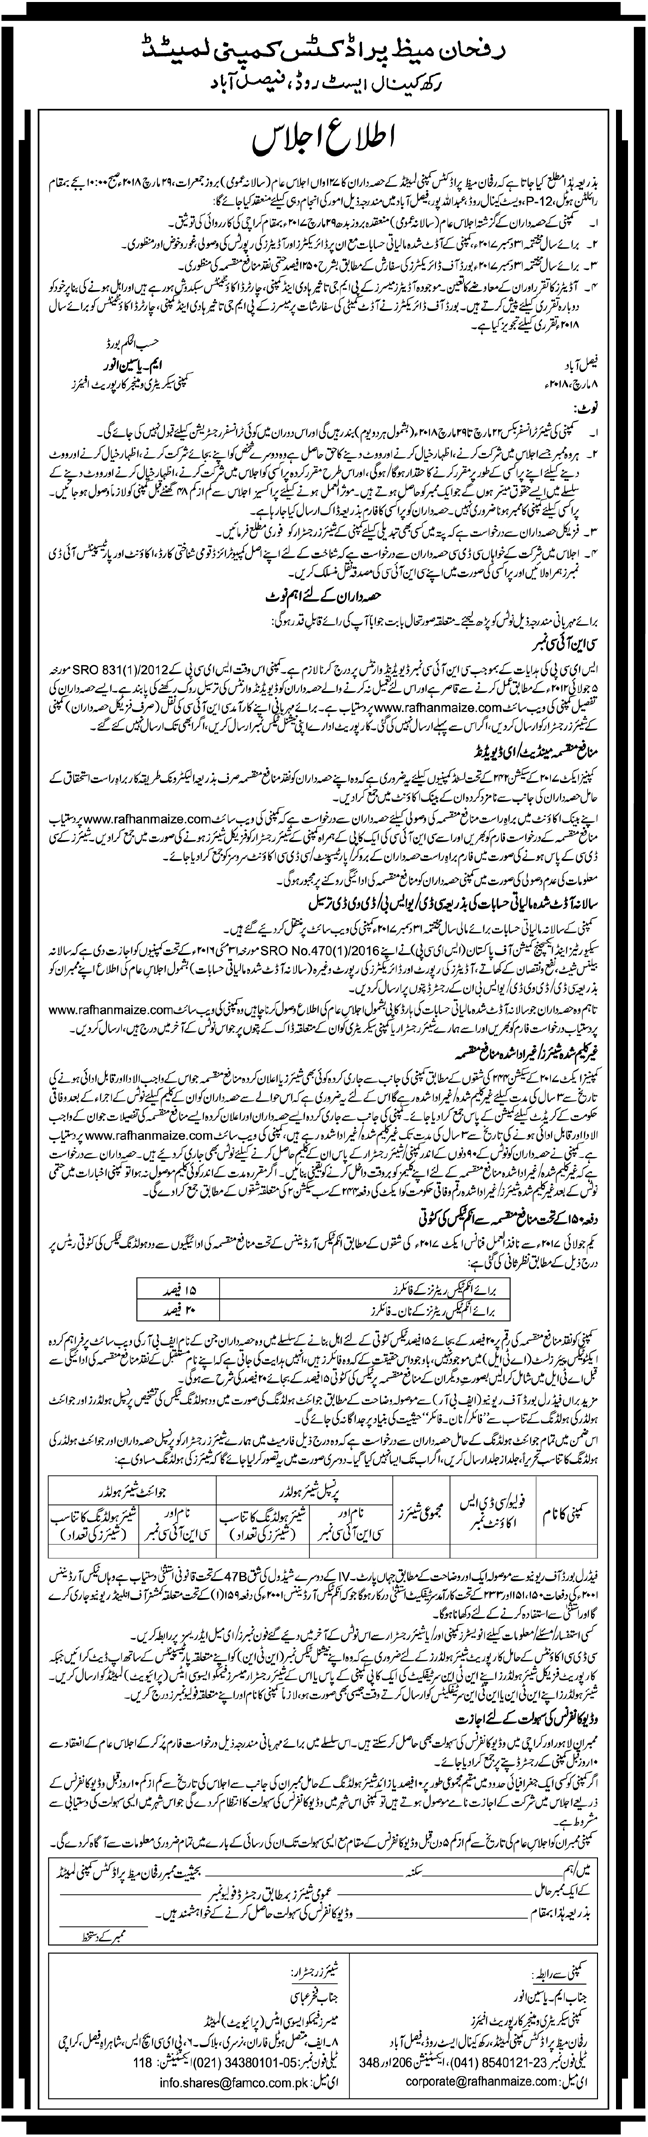 رفحان میظ پراڈکٹس کمپنی لمیٹڈ
رکھ کینال ایسٹ روڈ، فیصل آباد
اطلاع اجلاس
بذریعہ ہذا مطلع کیا جاتا ہے کہ رفحان میظ پراڈکٹس کمپنی لمیٹڈ کے حصہ داران کا ۱۲۷واں اجلاس عام (سالانہ عمومی) بروز جمعرات، ۲۹ مارچ ۲۰۱۸ صبح ۱۰:۰۰ بجے بمقام
ہوٹل، P-12، ویسٹ کینال روڈ، عبداللہ پور، فیصل آباد میں مندرجہ ذیل امور کی انجام دہی کیلئے منعقد کیا جائے گا:
۱۔ کمپنی کے حصہ داران کے گزشتہ اجلاس عام (سالانہ عمومی) منعقدہ بروز بدھ ۲۹ مارچ ۲۰۱۷ء بمقام کراچی کی کارروائی کی توثیق۔
۲۔ برائے سال مختتمہ ۳۱ دسمبر ۲۰۱۷ء کمپنی کے آڈٹ شدہ مالیاتی حسابات مع ان پر ڈائریکٹرز اور آڈیٹرز کی رپورٹس کی وصولی غور و خوض اور منظوری۔
۳۔ برائے سال مختتمہ ۳۱ دسمبر ۲۰۱۷ء بورڈ آف ڈائریکٹرز کی سفارش کے مطابق بشرح ۱۲۵۰ فیصد حتمی نقد منافع منقسمہ کی منظوری۔
۴۔ آڈیٹرز کا تقرر اور ان کے معاوضے کا تعین۔ موجودہ آڈیٹرز میسرز کے پی ایم جی تاثیر ہادی اینڈ کمپنی، چارٹرڈ اکاؤنٹینٹس سبکدوش ہو رہے ہیں اور اہل ہونے کی بنا پر خود کو
دوبارہ تقرری کیلئے پیش کرتے ہیں۔ بورڈ آف ڈائریکٹرز نے آڈٹ کمیٹی کی سفارشات پر میسرز کے پی ایم جی تاثیر ہادی اینڈ کمپنی، چارٹرڈ اکاؤنٹینٹس کو برائے سال
۲۰۱۸ء تقرری کیلئے تجویز کیا ہے۔
حسب الحکم بورڈ
فیصل آباد
ایم۔ یاسین انور
۸ مارچ، ۲۰۱۸ء
کمپنی سیکریٹری و منیجر کارپوریٹ افیئرز
نوٹ:
۱۔ کمپنی کی شیئر ٹرانسفر بکس ۲۲ مارچ تا ۲۹ مارچ ۲۰۱۸ء (بشمول ہر دو یوم) بند رہیں گی اور اس دوران میں کوئی ٹرانسفر رجسٹریشن کیلئے قبول نہیں کی جائے گی۔
۲۔ ہر وہ ممبر جسے اجلاس میں شرکت کرنے، اظہار خیال کرنے اور ووٹ دینے کا حق حاصل ہے وہ دوسرے شخص کو اپنے بجائے شرکت کرنے، اظہار خیال کرنے اور ووٹ
دینے کیلئے اپنے پراکسی کے طور پر مقرر کرنے کا حقدار ہوگا/ہوگی، اور اس طرح مقرر کردہ پراکسی کو اجلاس میں شرکت کرنے، اظہار خیال کرنے اور ووٹ دینے کے
سلسلے میں ایسے حقوق میسر ہوں گے جو ایک ممبر کو حاصل ہوتے ہیں۔ موثر العمل ہونے کیلئے پراکسیز اجلاس سے کم از کم ۴۸ گھنٹے قبل کمپنی کو لازماً وصول ہو جائیں۔
پراکسی کیلئے کمپنی کا ممبر ہونا ضروری نہیں۔ حصہ داران کو پراکسی کا فارم بذریعہ ڈاک ارسال کیا جا رہا ہے۔
۳۔ فزیکل حصہ داران سے درخواست ہے کہ پتہ میں کسی بھی تبدیلی کیلئے کمپنی کے شیئر رجسٹرار کو فوری مطلع فرمائیں۔
۴۔ اجلاس میں شرکت کے خواہاں سی ڈی سی حصہ داران سے درخواست ہے کہ شناخت کے لئے اپنے اصل کمپیوٹرائزڈ قومی شناختی کارڈ، اکاؤنٹ اور پارٹیسپنٹس آئی ڈی
نمبرز ہمراہ لائیں اور پراکسی کی صورت میں اپنے سی این آئی سی کی مصدقہ نقل منسلک کریں۔
حصہ داران کے لئے اہم نوٹ
برائے مہربانی مندرجہ ذیل نوٹس کو پڑھ لیجئے۔ متعلقہ صورتحال بابت جوابا آپ کی رائے قابل قدر ہوگی:
سی این آئی سی نمبر
ایس ای سی پی کی ہدایات کے بموجب سی این آئی سی نمبر ڈیویڈنڈ وارنٹس پر درج کرنا لازم ہے۔ کمپنی اس وقت ایس ای سی پی کے SRO 831(1)/2012 مورخہ
۵ جولائی ۲۰۱۲ء کے مطابق عمل کرنے سے قاصر ہے اور اس لئے تعمیل نہ کرنے والے حصہ داران کو ڈیویڈنڈ وارنٹس کی ترسیل روک رکھنے کی پابند ہے۔ ایسے حصہ داران کی
تفصیل کمپنی کی ویب سائٹ www.rafhanmaize.com پر دستیاب ہے۔ برائے مہربانی اپنے کارآمد سی این آئی سی کی نقل (صرف فزیکل حصہ داران) کمپنی
کے شیئر رجسٹرار کو ارسال کر دیں، اگر اس سے پہلے ارسال نہیں کی گئی۔ کارپوریٹ ادارے اپنی نیشنل ٹیکس نمبر ارسال کریں، اگر ابھی تک ارسال نہیں کئے گئے۔
منافع منقسمہ مینڈیٹ/ای ڈیویڈنڈ
کمپنیز ایکٹ ۲۰۱۷ کے سیکشن ۲۴۲ کے تحت لسٹڈ کمپنیوں کیلئے یہ ضروری ہے کہ وہ اپنے حصہ داران کو نقد منافع منقسمہ صرف بذریعہ الیکٹرونک طریقہ کار براہ راست استحقاق کے
حامل حصہ داران کی جانب سے نامزد کردہ ان کے بینک اکاؤنٹ میں جمع کرا دیں۔
اپنے بینک اکاؤنٹ میں براہ راست منافع منقسمہ کی وصولی کیلئے حصہ داران سے درخواست ہے کہ کمپنی کی ویب سائٹ www.rafhanmaize.com پر دستیاب
منافع منقسمہ کے درخواست فارم کو بھریں اور اسے سی این آئی سی کی ایک کاپی کے ہمراہ کمپنی کے شیئر رجسٹرار کو فزیکل شیئرز ہونے کی صورت میں جمع کرا دیں۔ شیئرز کے سی
ڈی سی کے پاس ہونے کی صورت میں فارم براہ راست حصہ داران کے بروکر/پارٹیسپنٹ/سی ڈی سی اکاؤنٹ سروسز کو جمع کرا دیا جائے۔
معلومات کی عدم وصولی کی صورت میں کمپنی حصہ داران کو منافع منقسمہ کی ادائیگی روکنے پر مجبور ہوگی۔
سالانہ آڈٹ شدہ مالیاتی حسابات کی بذریعہ سی ڈی/یو ایس بی/ڈی وی ڈی ترسیل
کمپنی کے سالانہ مالیاتی حسابات برائے مالی سال مختتمہ ۳۱ دسمبر ۲۰۱۷ء کمپنی کی ویب سائٹ پر منتقل کر دیئے گئے ہیں۔
سیکیورٹیز اینڈ ایکسچینج کمیشن آف پاکستان (ایس ای سی پی) نے اپنے SRO No.470(1)/2016 مورخہ ۳۱ مئی ۲۰۱۶ء کے تحت کمپنیوں کو اجازت دی ہے کہ سالانہ
بیلنس شیٹ، نفع و نقصان کے کھاتے، آڈیٹرز کی رپورٹ اور ڈائریکٹرز کی رپورٹ وغیرہ (سالانہ آڈٹ شدہ مالیاتی حسابات) بشمول اجلاس عام کی اطلاع اپنے ممبران کو
بذریعہ سی ڈی/ڈی وی ڈی/یو ایس بی ان کے رجسٹرڈ پتوں پر ارسال کر دیں۔
تاہم وہ حصہ داران جو سالانہ آڈٹ شدہ مالیاتی حسابات کی ہارڈ کاپی بشمول اجلاس عام کی اطلاع وصول کرنا چاہیں وہ کمپنی کی ویب سائٹ www.rafhanmaize.com
پر دستیاب درخواست فارم کو بھریں اور اسے ہمارے شیئر رجسٹرار یا کمپنی سیکریٹری کو ان کے متعلقہ ڈاک کے پتوں پر جو اس نوٹس کے آخر میں درج ہیں، ارسال کر دیں۔
غیر کلیم شدہ شیئرز/غیر ادا شدہ منافع منقسمہ
کمپنیز ایکٹ ۲۰۱۷ کے سیکشن ۲۴۴ کی شقوں کے مطابق کمپنی کی جانب سے جاری کردہ کوئی بھی شیئرز یا اعلان کردہ منافع منقسمہ جو اس کے واجب الادا اور قابل ادائی ہونے کی
تاریخ سے ۳ سال کی مدت کیلئے غیر کلیم شدہ/غیر ادا شدہ رہے گا اس کے لئے یہ ضروری ہے کہ اس حوالے سے حصہ داران کو ان کے کلیم کیلئے نوٹس کے اجراء کے بعد وفاقی
حکومت کے کریڈٹ کیلئے کمیشن کے پاس جمع کرا دیا جائے۔ کمپنی کی جانب سے جاری کردہ ایسے حصہ داران اور اعلان کردہ ایسے منافع منقسمہ کی تفصیلات جو ان کے واجب
الادا اور قابل ادائی ہونے کی تاریخ سے ۳ سال کی مدت تک غیر کلیم شدہ/غیر ادا شدہ رہے ہیں، کمپنی کی ویب سائٹ www.rafhanmaize.com پر دستیاب
ہے۔ کمپنی نے حصہ داران کو نوٹس کے ۹۰ دنوں کے اندر کمپنی/شیئر رجسٹرار کے پاس ان کے کلیم حاصل کرنے کیلئے نوٹس بھی جاری کر دیئے ہیں۔ حصہ داران سے درخواست
ہے کہ غیر کلیم شدہ/غیر ادا شدہ منافع منقسمہ کے لئے اپنے کلیمز کو بروقت داخل کرنے کو یقینی بنائیں۔ اگر مقررہ مدت کے اندر کوئی کلیم موصول نہ ہوا تو کمپنی اخبارات میں حتمی
نوٹس کے بعد غیر کلیم شدہ شیئرز/غیر ادا شدہ رقم وفاقی حکومت کو ایکٹ کی دفعہ ۲۴۴ کے سب سیکشن ۲ کی متعلقہ شقوں کے مطابق جمع کرا دے گی۔
دفعہ ۱۵۰ کے تحت منافع منقسمہ سے انکم ٹیکس کی کٹوتی
یکم جولائی ۲۰۱۷ء سے نافذ العمل فنانس ایکٹ ۲۰۱۷ء کی شقوں کے مطابق انکم ٹیکس آرڈیننس کے تحت منافع منقسمہ کی ادائیگیوں سے ود ہولڈنگ ٹیکس کی کٹوتی ریٹس پر
درج ذیل کے مطابق نظر ثانی کی گئی ہے:
برائے انکم ٹیکس ریٹرنز کے فائلرز ۱۵ فیصد
برائے انکم ٹیکس ریٹرنز کے نان۔ فائلرز ۲۰ فیصد
کمپنی کو نقد منافع منقسمہ کی رقم پر ۲۰ فیصد کے بجائے ۱۵ فیصد ٹیکس کٹوتی کے لئے اہل بنانے کے سلسلے میں وہ حصہ داران جن کے نام ایف بی آر کی ویب سائٹ پر فراہم کردہ
ایکٹو ٹیکس پیئرز لسٹ (اے ٹی ایل) میں موجود نہیں، باوجود اس حقیقت کے کہ وہ فائلرز ہیں، انہیں ہدایت کی جاتی ہے کہ اپنے نام مستقبل کے نقد منافع منقسمہ کی ادائیگی سے
قبل اے ٹی ایل میں شامل کرا لیں بصورت دیگر ان کے منافع منقسمہ پر ٹیکس کی کٹوتی ۱۵ فیصد کے بجائے ۲۰ فیصد کی شرح سے ہوگی۔
مزید براں فیڈرل بورڈ آف ریونیو (ایف بی آر) سے موصولہ وضاحت کے مطابق جوائنٹ ہولڈنگ کی صورت میں ود ہولڈنگ ٹیکس کی تشخیص پرنسپل ہولڈرز اور جوائنٹ
ہولڈرز کی ہولڈنگ کے تناسب سے ”فائلر/نان۔ فائلر“ حیثیت کی بنیاد پر جداگانہ کی جائے گی۔
اس ضمن میں تمام جوائنٹ ہولڈنگ کے حامل حصہ داران سے درخواست ہے کہ وہ درج ذیل فارمیٹ میں ہمارے شیئرز رجسٹرار کو پرنسپل حصہ داران اور جوائنٹ ہولڈرز کی
ہولڈنگ کا تناسب تحریراً، جلد از جلد ارسال کریں، اگر اب تک ایسا نہیں کیا گیا۔ دوسری صورت میں یہ تصور کر لیا جائے گا کہ شیئرز کی ہولڈنگ مساوی ہے:
کمپنی کا نام
فولیو/سی ڈی ایس اکاؤنٹ نمبر
مجموعی شیئرز
پرنسپل شیئر ہولڈر
جوائنٹ شیئر ہولڈر
نام اور سی این آئی سی نمبر
شیئر ہولڈنگ کا تناسب (شیئرز کی تعداد)
نام اور سی این آئی سی نمبر
شیئر ہولڈنگ کا تناسب (شیئرز کی تعداد)
فیڈرل بورڈ آف ریونیو سے موصولہ ایک اور وضاحت کے مطابق جہاں پارٹ۔ IV کے دوسرے شیڈول کی شق 47B کے تحت قانونی استثنیٰ دستیاب ہے وہاں ٹیکس آرڈیننس
۲۰۰۱ء کی دفعات ۱۵۰، ۱۵۱ اور ۲۳۳ کے تحت کارآمد سرٹیفکیٹ استثنیٰ درکار ہوگا جو کہ انکم ٹیکس آرڈیننس ۲۰۰۱ء کی دفعہ ۱۵۹(۱) کے تحت متعلقہ کمشنر آف ان لینڈ ریونیو جاری کرے
گا اور استثنیٰ سے استفادہ کرنے کے لئے دکھانا ہوگا۔
کسی استفسار/مسئلے/معلومات کیلئے انویسٹرز کمپنی اور/یا شیئر رجسٹرار سے اس نوٹس کے آخر میں دیئے گئے فون نمبرز/ای میل ایڈریسز پر رابطہ کریں۔
سی ڈی سی اکاؤنٹس کے حامل کارپوریٹ شیئر ہولڈرز کے لئے ضروری ہے کہ وہ اپنے نیشنل ٹیکس نمبر (این ٹی این) کو اپنے متعلقہ پارٹیسپنٹس کے ساتھ اپ ڈیٹ کرائیں جبکہ
کارپوریٹ فزیکل شیئر ہولڈرز اپنے این ٹی این سرٹیفکیٹ کی ایک کاپی کمپنی کے پاس یا اس کے شیئر رجسٹرار میسرز فیمکو ایسوسی ایٹس (پرائیویٹ) لمیٹڈ کو ارسال کریں۔
شیئر ہولڈرز اپنے این ٹی این یا این ٹی این سرٹیفکیٹس کو ارسال کرتے وقت جیسی بھی صورت ہو، لازماً کمپنی کا نام اور اپنے متعلقہ فولیو نمبرز درج کریں۔
وڈیو کانفرنس کی سہولت کے لئے اجازت
ممبران لاہور اور کراچی میں وڈیو کانفرنس کی سہولت بھی حاصل کر سکتے ہیں۔ اس سلسلے میں برائے مہربانی مندرجہ ذیل درخواست فارم پُر کر کے اجلاس عام کے انعقاد سے
۱۰ روز قبل کمپنی کے رجسٹرڈ پتے پر جمع کرا دیا جائے۔
اگر کمپنی کو کسی ایک جغرافیائی حدود میں مقیم مجموعی طور پر ۱۰ فیصد یا زائد شیئر ہولڈنگ کے حامل ممبران کی جانب سے اجلاس کی تاریخ سے کم از کم ۱۰ روز قبل وڈیو کانفرنس کے
ذریعے اجلاس میں شرکت کے اجازت نامے موصول ہوتے ہیں تو کمپنی اس شہر میں وڈیو کانفرنس کی سہولت کا انتظام کرے گی جو اس شہر میں ایسی سہولت کی دستیابی سے
مشروط ہے۔
کمپنی ممبران کو اجلاس عام کی تاریخ سے کم از کم ۵ دن قبل وڈیو کانفرنس کے مقام مع ایسی سہولت تک ان کی رسائی کے بارے میں تمام ضروری معلومات سے آگاہ کر دے گی۔
میں/ہم ـــــــــ سکنہ ـــــــــ بحیثیت ممبر رفحان میظ پراڈکٹس کمپنی لمیٹڈ
کے ایک ممبر حامل ـــــــــ عمومی شیئرز بمطابق رجسٹرڈ فولیو نمبر ـــــــــ
بذریعہ ہذا بمقام ـــــــــ وڈیو کانفرنس کی سہولت حاصل کرنے کے خواہشمند ہیں۔
ممبر کے دستخط
کمپنی سے رابطہ:
جناب ایم۔ یاسین انور
کمپنی سیکریٹری و منیجر کارپوریٹ افیئرز
رفحان میظ پراڈکٹس کمپنی لمیٹڈ، رکھ کینال ایسٹ روڈ، فیصل آباد
ٹیلی فون نمبر: 23-8540121 (041)، ایکسٹینشن 206 اور 348
ای میل: corporate@rafhanmaize.com
شیئرز رجسٹرار:
جناب فخر عباسی
میسرز فیمکو ایسوسی ایٹس (پرائیویٹ) لمیٹڈ
۸۔ ایف، متصل ہوٹل فاران، نرسری، بلاک۔ ۶، پی ای سی ایچ ایس، شاہراہ فیصل، کراچی
ٹیلی فون نمبر: 05-34380101 (021) ایکسٹینشن: 118
ای میل: info.shares@famco.com.pk